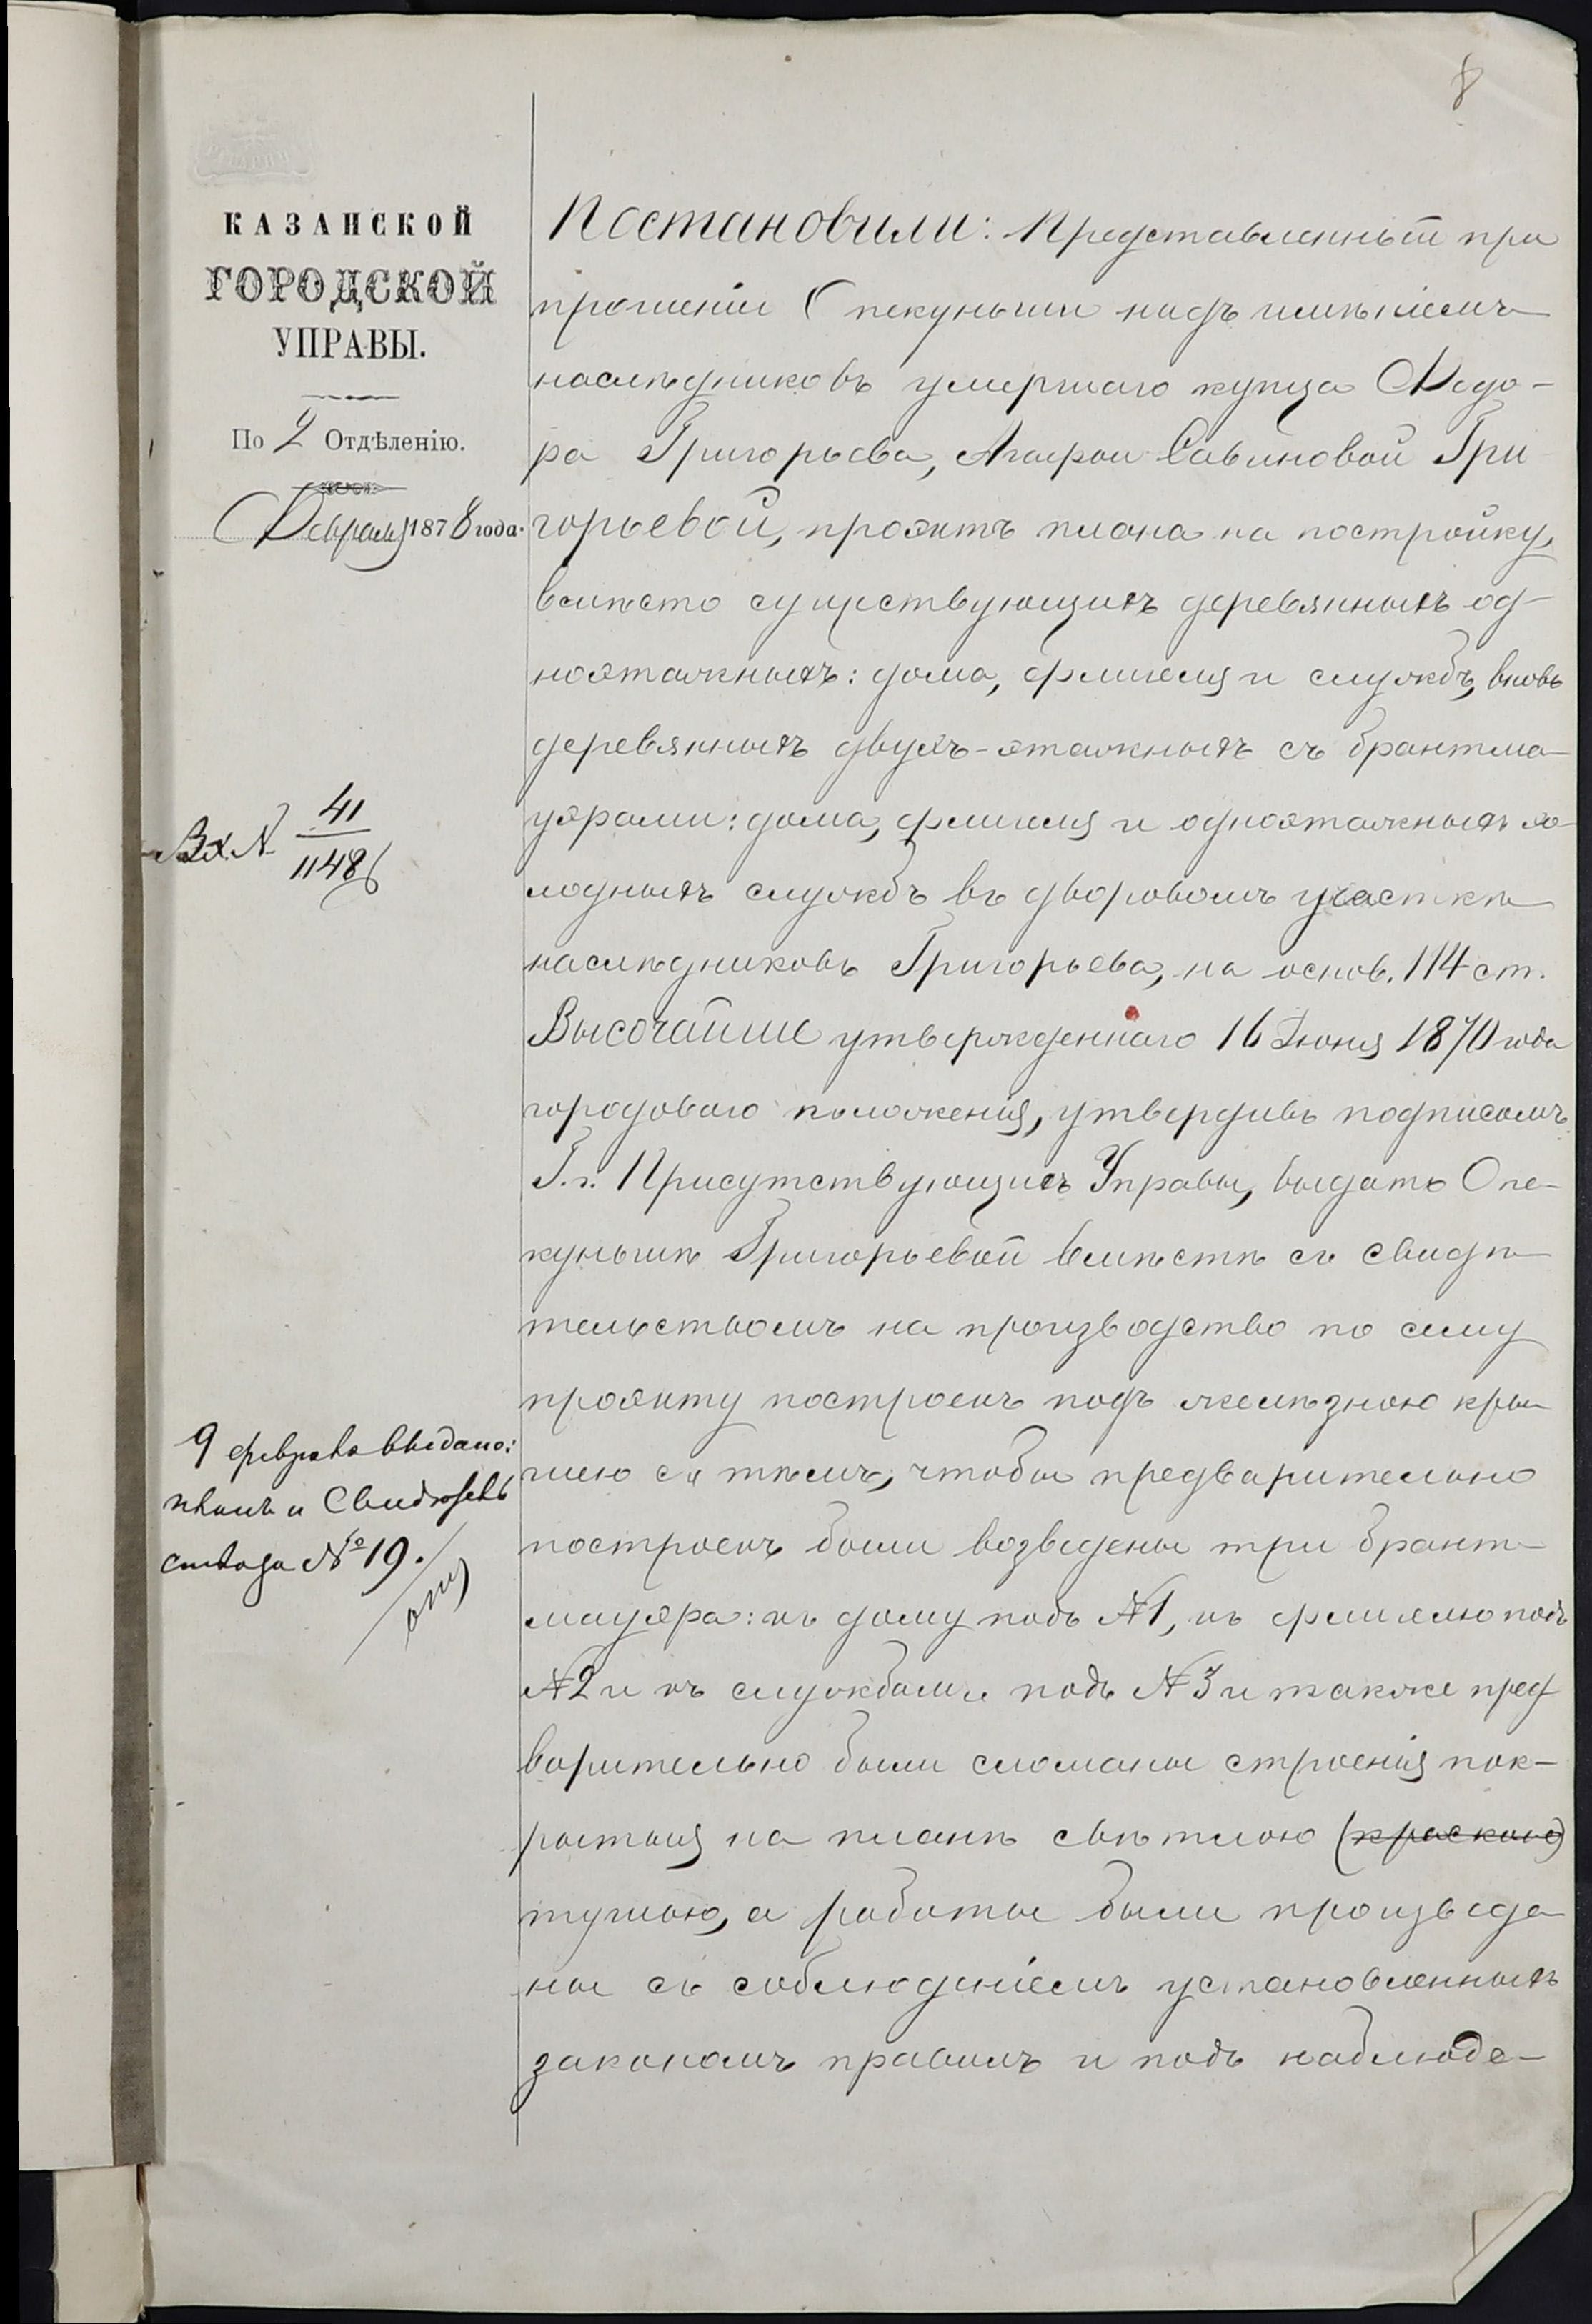 8
КАЗАНСКОЙ
ГОРОДСКОЙ
УПРАВЫ.
По 2 Отдѣленію.
Февраля 1878 года.
Вх. № 41
11486
9 февраля выдано:
планъ и Свидѣтель
ство за № 19.
Постановили: Представленный при
прошеніи Опекунши надъ имѣніемъ
наслѣдниковъ умершаго купца Ѳедо-
ра Григорьева, Агафьи Савиновой Гри
горьевой, проэктъ плана на постройку,
вмѣсто существующихъ деревянныхъ од-
ноэтажныхъ: дома, флигеля и службъ, вновь
деревянныхъ двухъ-этажныхъ съ брантма-
уэрами: дома, флигеля и одноэтажныхъ хо-
лодныхъ службъ въ дворовомъ участкѣ
наслѣдниковъ Григорьева, на основ. 114 ст.
Высочайше утвержденнаго 16 Іюня 1870 года
городоваго положенія, утвердивъ подписомъ
Г.г. Присутствующихъ Управы, выдать Опе-
куншѣ Григорьевой вмѣстѣ съ свидѣ-
тельствомъ на производство по сему
проэкту построекъ подъ желѣзною кры-
шею съ тѣмъ, чтобы предварительно
построекъ были возведены три брант-
мауэра: къ дому подъ №1, къ флигелю подъ
№2 и къ службамъ подъ №3 и также пред
варительно были сломаны строенія пок-
рытыя на планѣ свѣтлою (краскою)
тушью, а работы были произведе-
ны съ соблюденіемъ установленныхъ
закономъ правилъ и подъ наблюде-